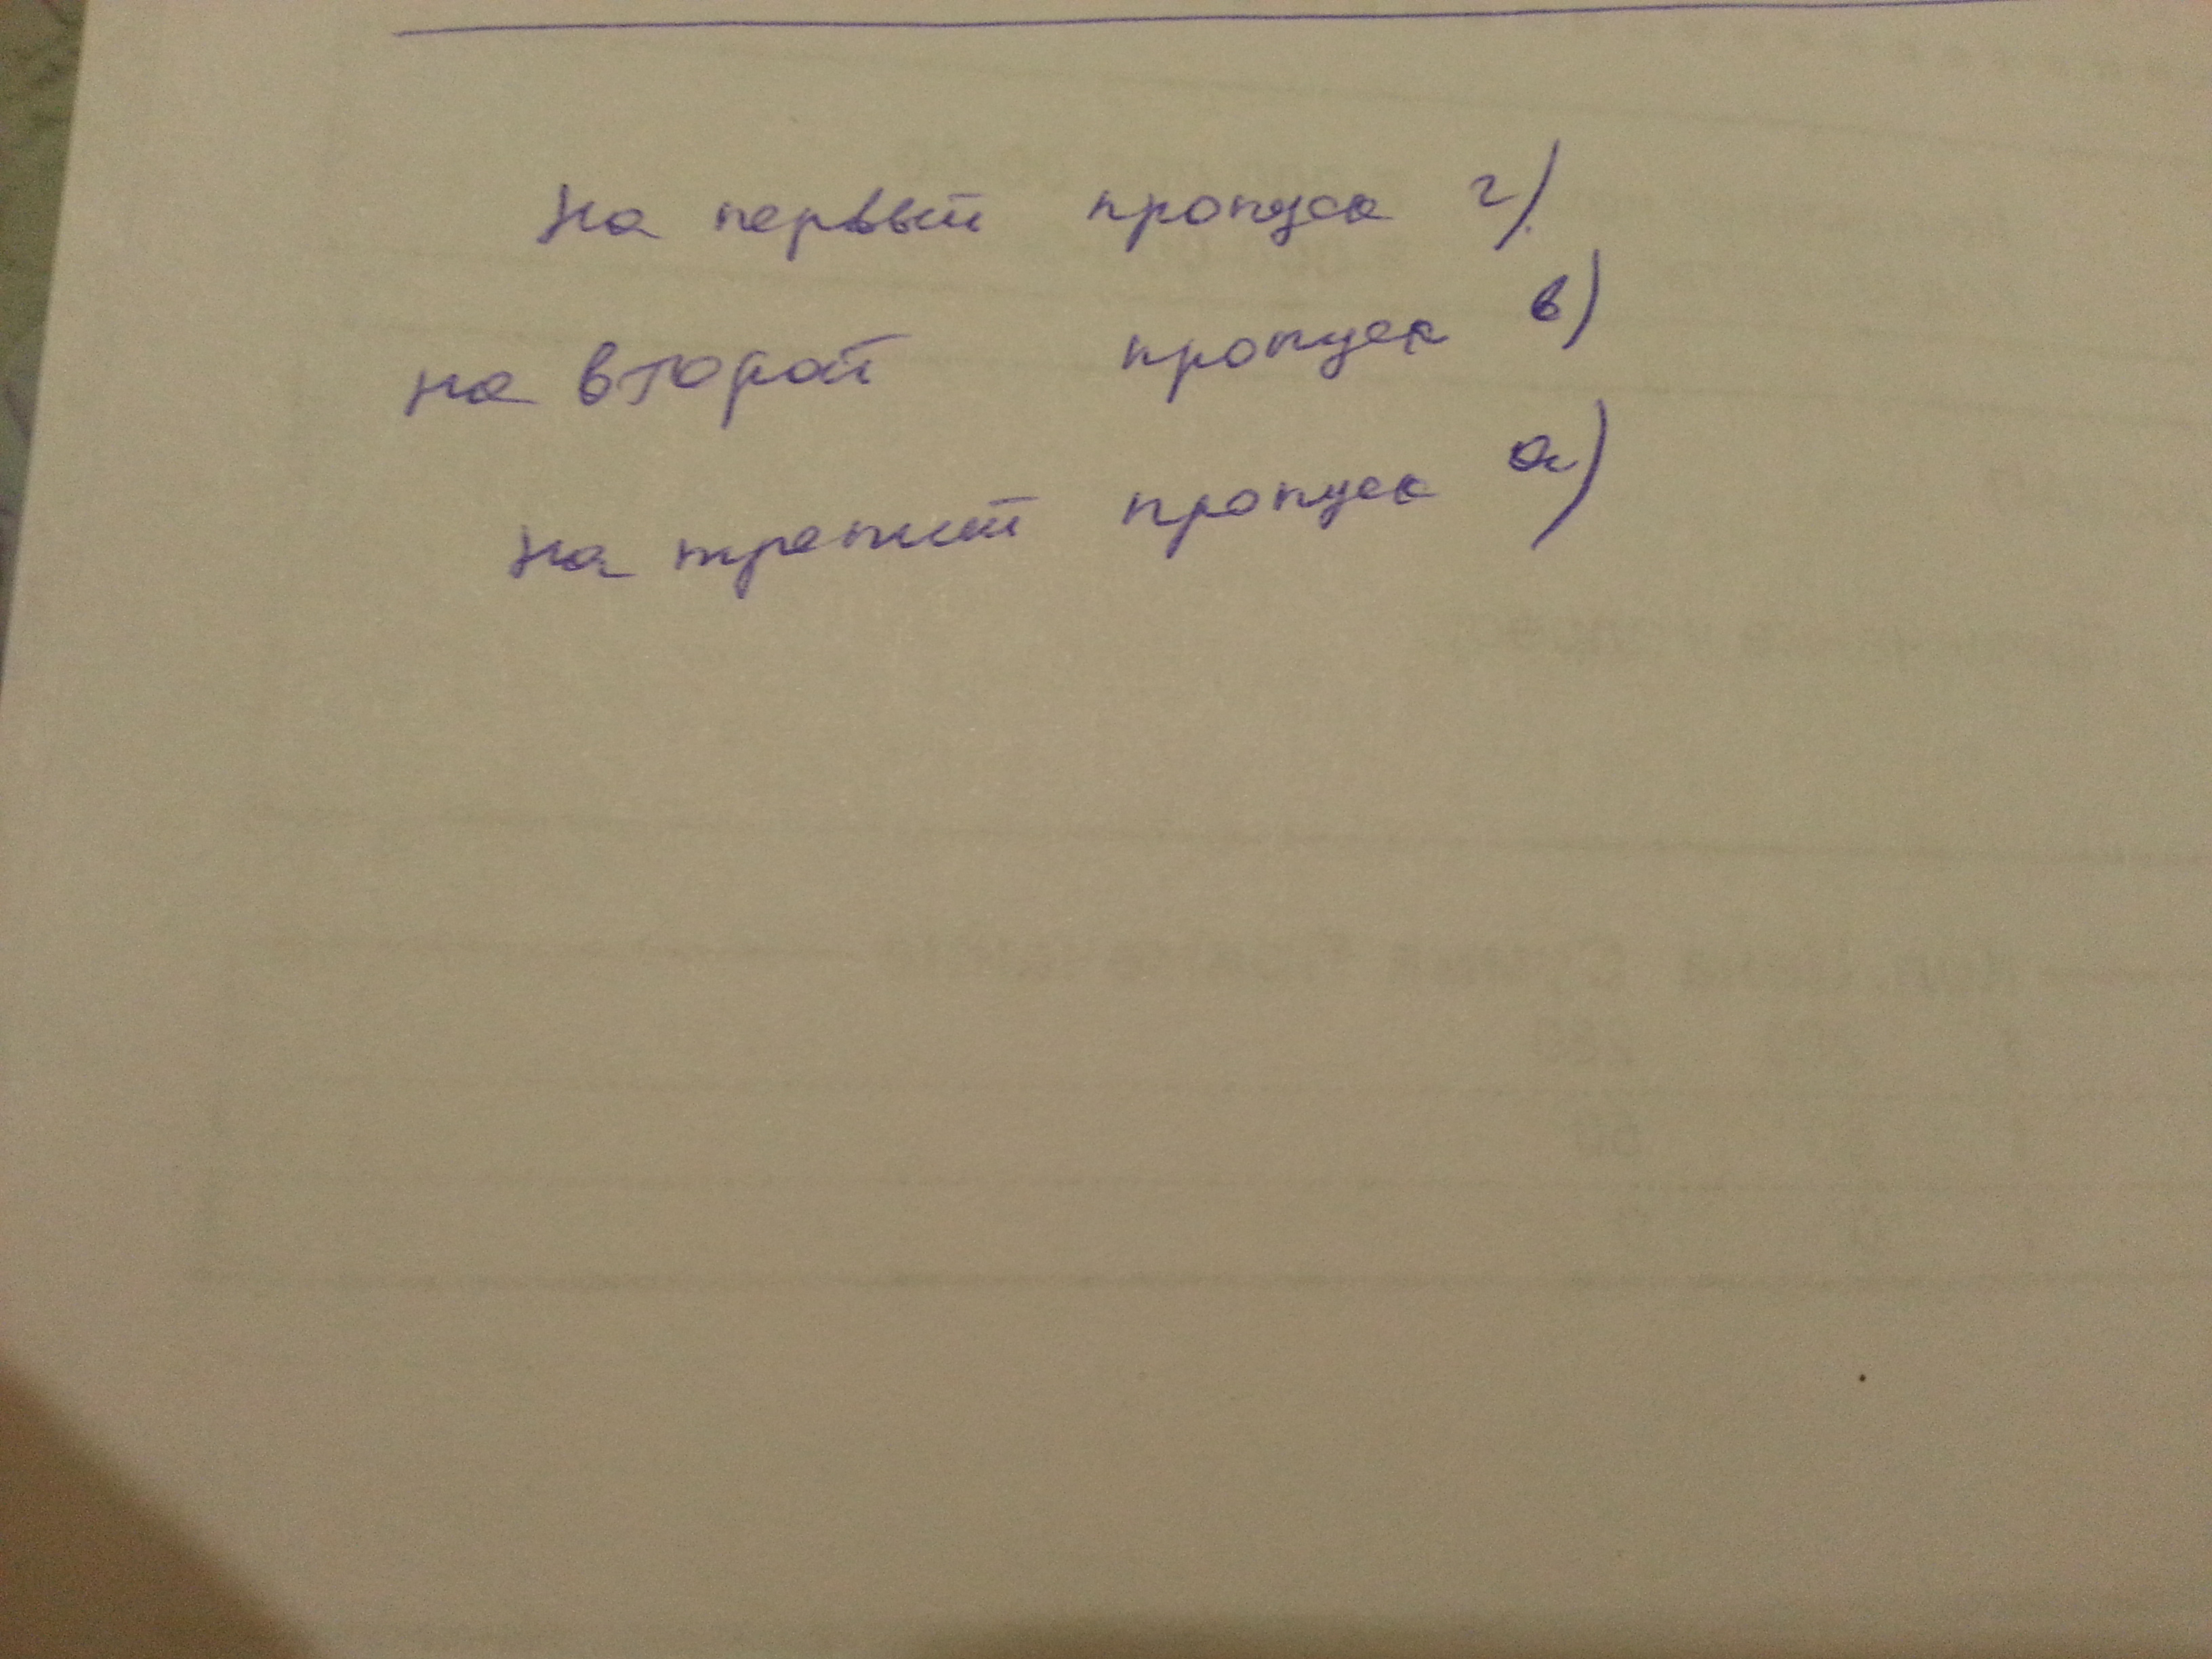 на первый пропуск г)
на второй пропуск в)
на третий пропуск а)